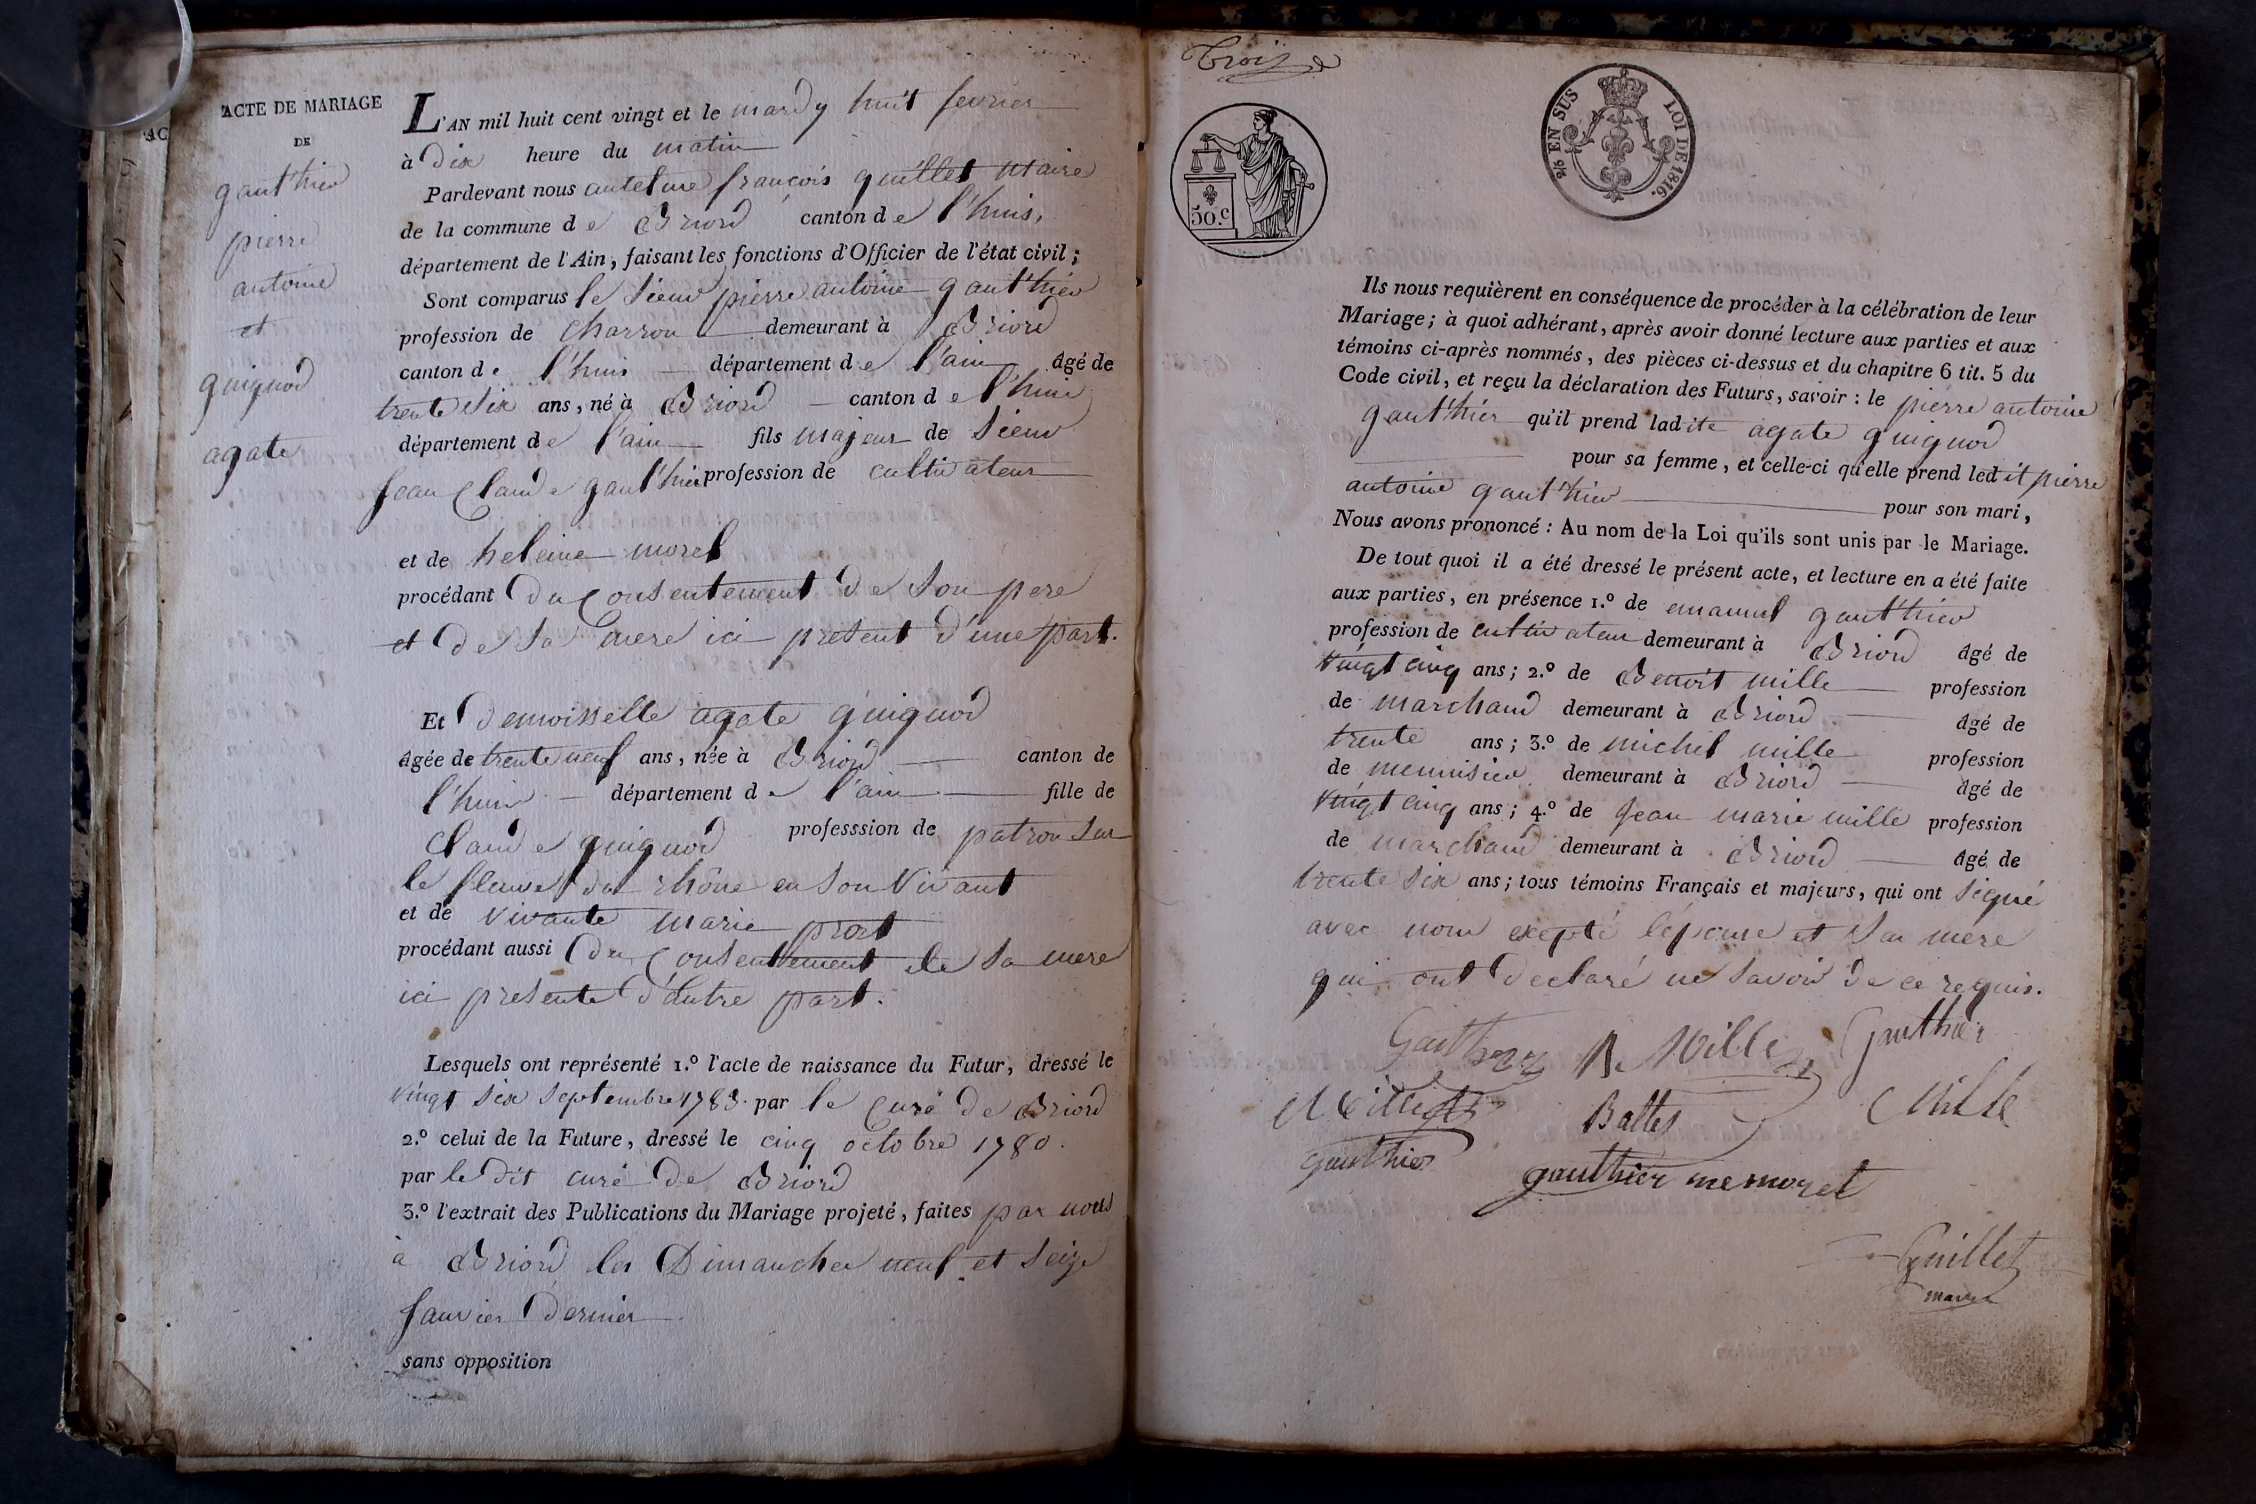 ACTE DE MARIAGE
DE
gauthier
pierre
antoine
et
guignod
agate
AC
L'AN mil huit cent vingt et le mardy huit fevrier
à Dix heure du matin
Pardevant nous antelme françois guillet Maire
de la commune de Briord canton de l'huis,
département de l'Ain, faisant les fonctions d'Officier de l'état civil;
Sont comparus le sieur pierre antoine gauthier
profession de charron demeurant à Briord
canton de l'huis département de l'ain âgé de
trente six ans, né à Briord canton de l'huis
département de l'ain fils majeur de sieur
jean Claude gauthier profession de cultivateur
et de heleine morel
procédant Du Consentement de son pere
et de sa mere ici present d'une part.
Et Demoisselle agate guignod
âgée de trente neuf ans, née à Briord canton de
l'huis département de l'ain fille de
Claude guignod professsion de patron sur
le fleuve du rhône en son vivant
et de vivante marie prost
procédant aussi Du Consentement de sa mere
ici presente d'autre part.
Lesquels ont représenté 1.º l'acte de naissance du Futur, dressé le
vingt six septembre 1783. par le Curé de Briord
2.º celui de la Future, dressé le cinq octobre 1780.
par le dit curé de Briord
3.º l'extrait des Publications du Mariage projeté, faites par nous
à Briord les Dimanches neuf et seize
janvier dernier
sans opposition
Trois
50.c
% EN SUS LOI DE 1816.
Ils nous requièrent en conséquence de procéder à la célébration de leur
Mariage; à quoi adhérant, après avoir donné lecture aux parties et aux
témoins ci-après nommés, des pièces ci-dessus et du chapitre 6 tit. 5 du
Code civil, et reçu la déclaration des Futurs, savoir : le pierre antoine
gauthier qu'il prend ladite agate guignod
pour sa femme, et celle-ci qu'elle prend ledit pierre
antoine gauthier pour son mari,
Nous avons prononcé : Au nom de la Loi qu'ils sont unis par le Mariage.
De tout quoi il a été dressé le présent acte, et lecture en a été faite
aux parties, en présence 1.º de emanuel gauthier
profession de cultivateur demeurant à Briord âgé de
vingt cinq ans; 2.º de Benoit mille profession
de marchand demeurant à Briord âgé de
trente ans; 3.º de michel mille profession
de menuisier demeurant à Briord âgé de
vingt cinq ans; 4.º de jean marie mille profession
de marchand demeurant à Briord âgé de
trente six ans; tous témoins Français et majeurs, qui ont signé
avec nous exepté l'épouse et sa mere
qui ont declaré ne savoir de ce requis.
Gauthier B. Mille Gauthier
Mille
gauthier gauthier ne morel
Guillet
maire